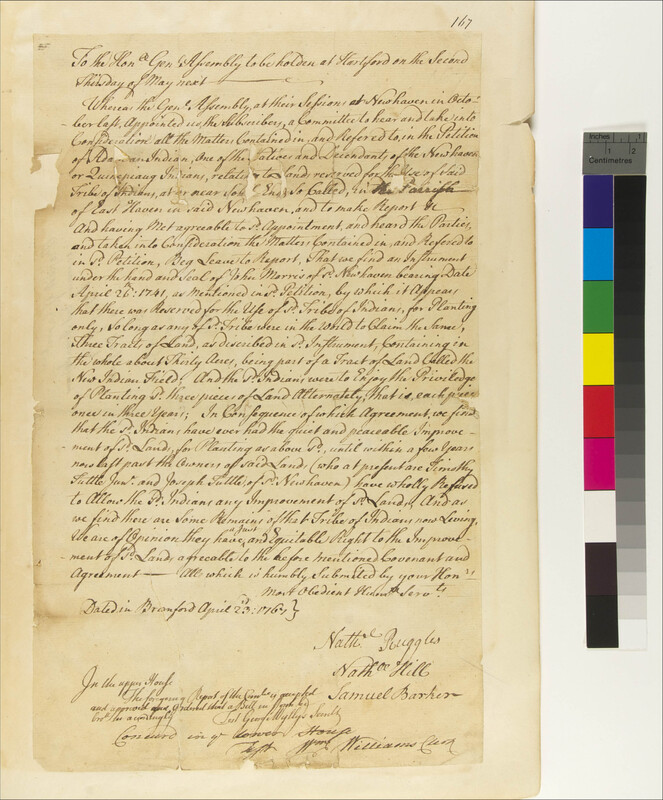 167
To the Honble Genl Assembly to be holden at Hartford on the Second
Thursday of May next
Whereas the Genl Assembly, at their Sessions at Newhaven in Octo-
ber last, Appointed us, the Subscribers, a Committee to hear and take into
Consideration all the Matters Contained in, and Refered to, in the Petition
of Adam an Indian, One of the Natives and Decendants of the Newhaven
or Quinepiaug Indians, relateing to Land reserved for the Use of Said
Tribe of Indians, at or near Solr End, So Called, in the Parrish
of East Haven in said Newhaven, and to make Report &c
And having Met agreable to Sd. Appointment, and heard the Parties,
and taken into Consideration the Matters Contained in, and Refered to
in Sd. Petition, Beg Leave to Report, That we find an Instrument
under the hand and Seal of John Morris of sd. Newhaven bearing Date
April 2d: 1741, as Mentioned in sd. Petition, by which it Appears
that there was Reserved for the Use of Sd. Tribe of Indians, for Planting
only, So long as any of Sd. Tribe were in the World to Claim the Same,
three Tracts of Land, as described in Sd. Instrument, Containing in
the whole about Thirty Acres, being part of a Tract of Land Called the
New Indian Field; And the Sd. Indians were to Enjoy the Priviledge
of Planting Sd. three pieces of Land Alternately, that is, each piece
once in three Years; In Consequence of which Agreement, we find
that the Sd. Indians have ever had the quiet and peaceable Improve-
-ment of Sd. Lands, for Planting as above Sd., until within a few Years
now last past the Owners of said Land, (who at present are Timothy
Tuttle Junr. and Joseph Tuttle, of Sd. Newhaven) have wholly Refused
to Allow the Sd. Indians any Improvement of Sd. Lands, And as
we find there are Some Remains of that Tribe of Indians now Living,
We are of Opinion they have a Just and Equitable Right to the Improve-
-ment of Sd. Land, agreable to the before mentioned Covenant and
Agreement — All which is humbly Submitted by your Honrs
Most Obedient Humble Servts
Dated in Branford April 23d: 1767}
Nathl. Ruggles
Nathll Hill
Samuel Barker
In the upper House
The foregoing Report of the Comtee is accepted
and approved and Ordered that a Bill in form be
brot in accordingly
Test George Wyllys Secrety
Concurd in ye lower House
Test Wm Williams Clerk